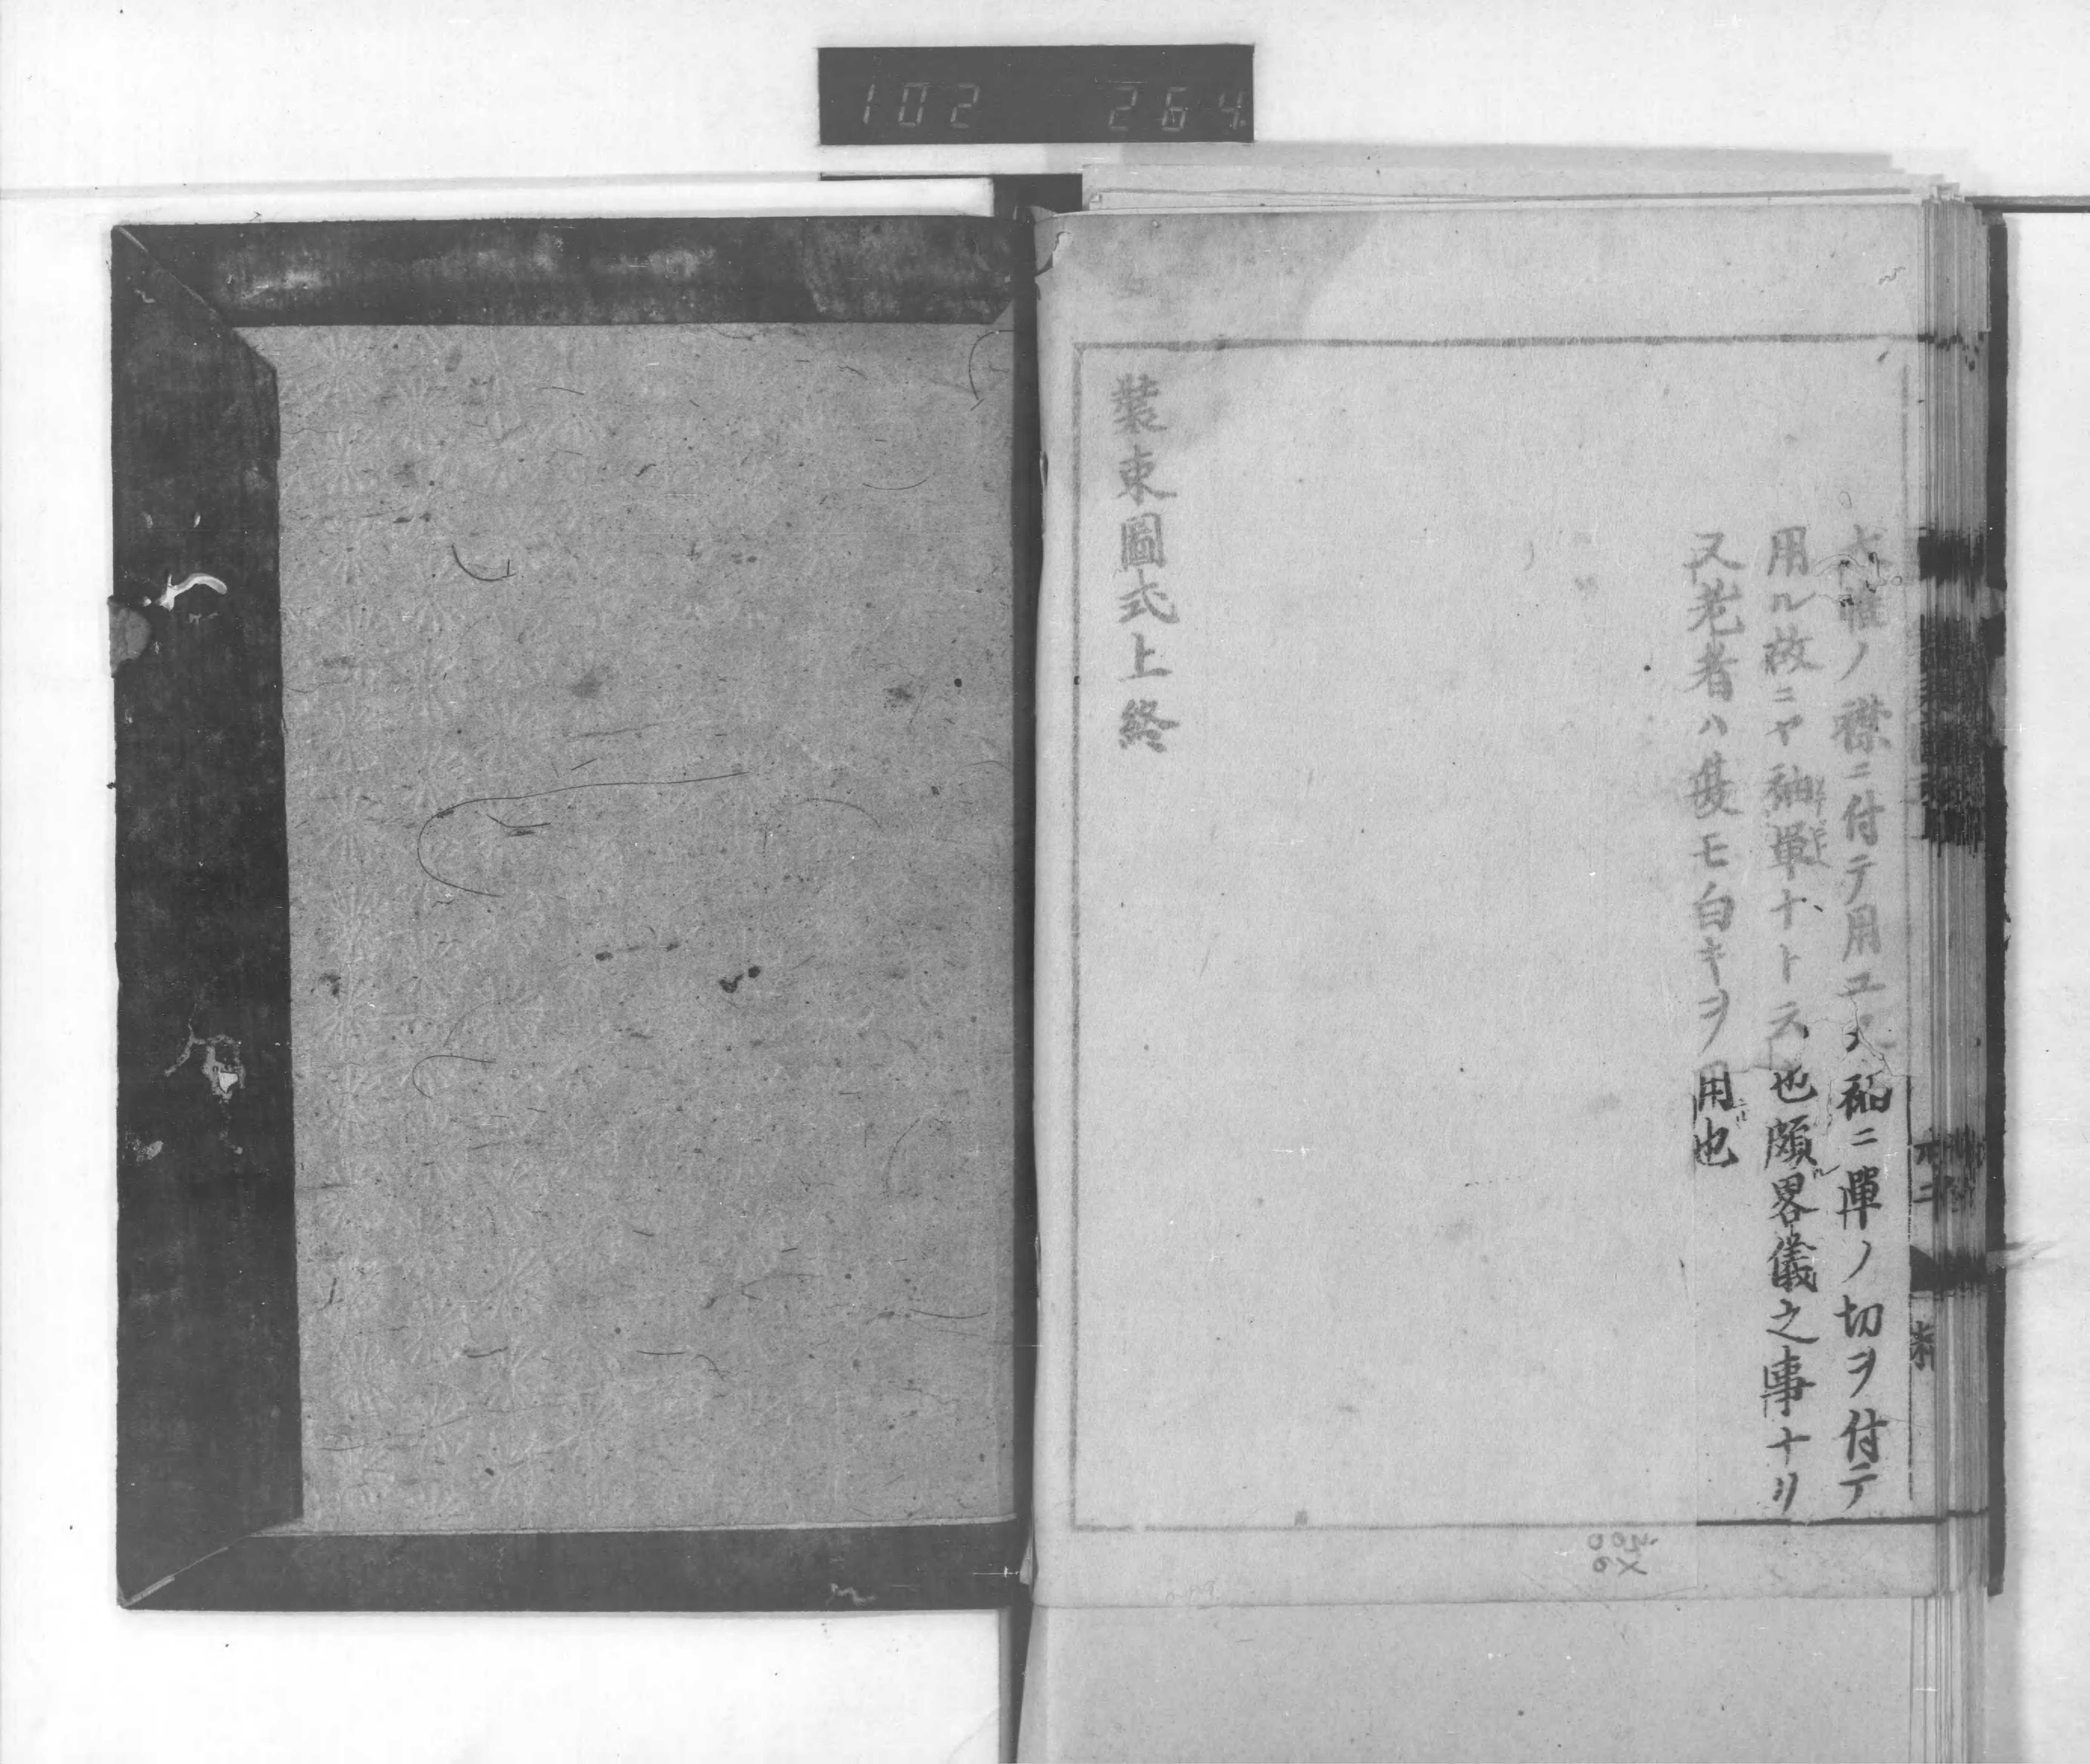 102 264
襟ニ付テ用ユ又袖ニ單ノ切ヲ付テ
用ル故ニヤ袖單ナト云也頗畧儀之事ナリ
又老者ハ幾モ白キヲ用也
裝束圖式上終